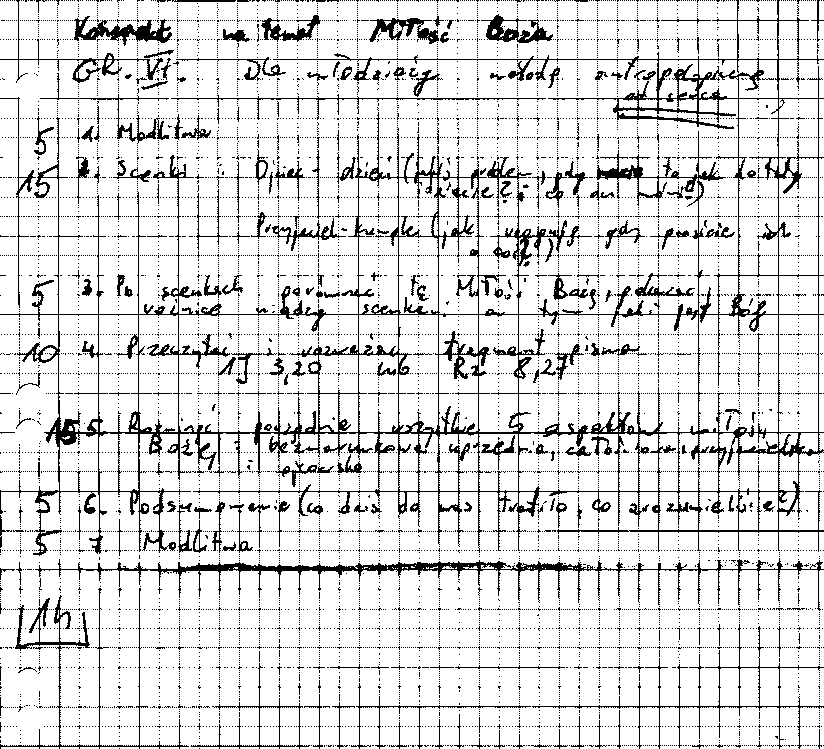 Konspekt na temat Miłość Boża
GR. VI. Dla młodzieży metodą antropologiczną
od serca
5 1. Modlitwa
15 2. Scenki : Ojciec - dzieci (jakiś problem, gdy to jak do taty
idziecie? i co on mówi?)
Przyjaciel - kumple (jak reagują gdy prosicie ich
o coś?)
5 3. Po scenkach porównać tę Miłość Bożą, pokazać
różnice między scenkami a tym jaki jest Bóg
10 4. Przeczytać i rozważać fragment pisma
1J 3,20 lub Rz 8,27
15 5. Rozwinąć porządnie wszystkie 5 aspektów miłości
Bożej : bezwarunkowa, uprzednia, całościowa, przyjacielska
i ojcowska
5 6. Podsumowanie (co dziś do was trafiło, co zrozumieliście?)
5 7 Modlitwa
1h